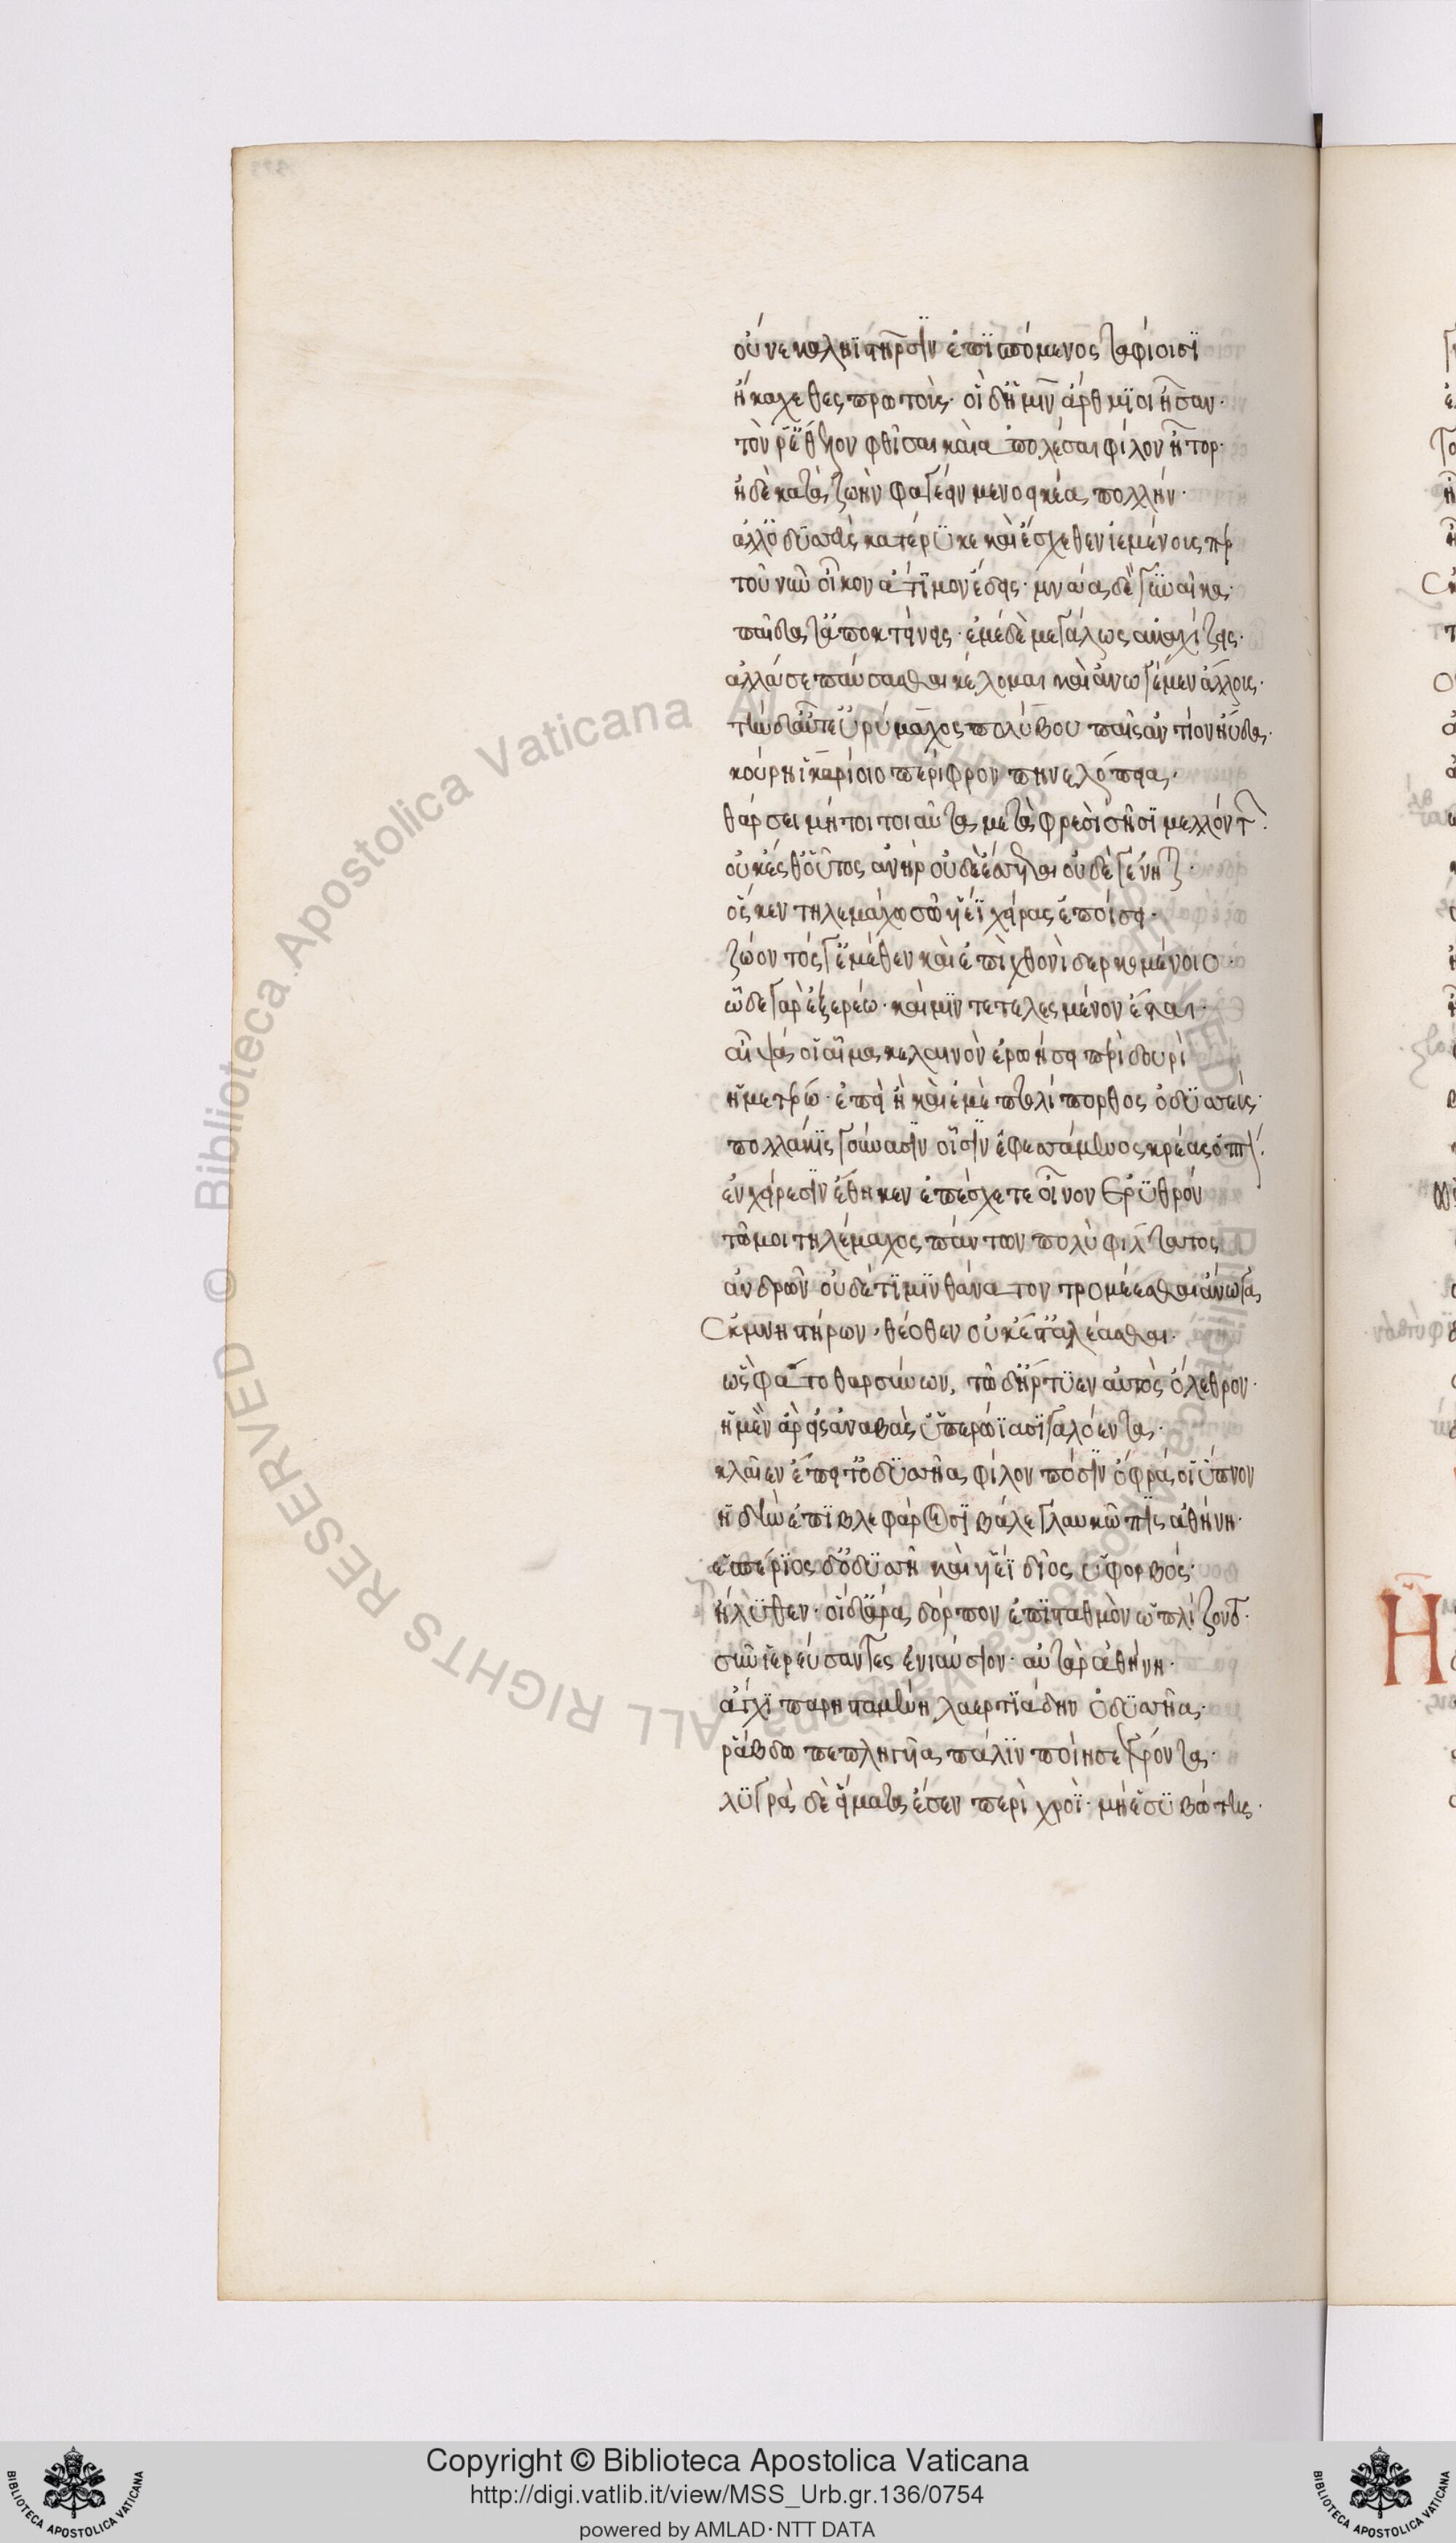 οὕνεκα ληϊστῆρσιν ἐπισπόμενος ταφίοισι
ἤκαχε θεσπρωτοὺς· οἱ δ' ἡμῖν ἄρθμιοι ἦσαν·
τόν ῥ' ἔθελον φθῖσαι καὶ ἀπολέσαι φίλον ἦτορ·
ἠδὲ κατὰ ζωὴν φαγέειν μενοεικέα πολλήν·
ἀλλ' ὀδυσσεὺς κατέρυκε καὶ ἔσχεθεν ἱεμένους περ
τοῦ νῦν οἶκον ἄτιμον ἔδεις· μνάᾳ δὲ γυναῖκα·
παῖδά τ' ἀποκτείνεις· ἐμὲ δὲ μεγάλως ἀκαχίζεις·
ἀλλά σε παύσασθαι κέλομαι καὶ ἀνωγέμεν ἄλλους·
τὴν δ' αὖτ' εὐρύμαχος πολύβου παῖς ἀντίον ηὔδα·
κούρη ἰκαρίοιο περίφρον πηνελόπεια·
θάρσει μή τοι ταῦτα μετὰ φρεσὶ σῇσι μελλόντων·
οὐκ ἔσθ' οὗτος ἀνὴρ οὐδ' ἔσσεται οὐδὲ γένηται·
ὅς κεν τηλεμάχῳ σῷ υἱέϊ χεῖρας ἐποίσει·
ζώοντός γ' ἐμέθεν καὶ ἐπὶ χθονὶ δερκομένοιο·
ὧδε γὰρ ἐξερέω· καὶ μὴν τετελεσμένον ἔσται·
αἶψά οἱ αἷμα κελαινὸν ἐρωήσει περὶ δουρὶ
ἡμετέρῳ· ἐπεὶ ἢ καὶ ἐμὲ πτολίπορθος ὀδυσσεύς·
πολλάκις γούνασιν οἷσιν ἐφεσσάμενος κρέας ὀπτὸν
ἐν χείρεσιν ἔθηκεν ἐπέσχε τε οἶνον ἐρυθρόν
τῶ μοι τηλέμαχος πάντων πολὺ φίλτατος
ἀνδρῶν οὐδέ τι μιν θάνατον τρομέεσθαι ἄνωγα
ἐκ μνηστήρων· θεόθεν οὐκ ἔστ' ἀλέασθαι·
ὣς φάτο θαρσύνων, τῷ δ' ἤρτυεν αὐτὸς ὄλεθρον·
ἡ μὲν ἄρ' εἰσαναβᾶσ' ὑπερώϊα σιγαλόεντα·
κλαῖεν ἔπειτ' ὀδυσσῆα φίλον πόσιν ὄφρά οἱ ὕπνον
ἡδὺν ἐπὶ βλεφάροισι βάλε γλαυκῶπις ἀθήνη·
ἑσπέριος δ' ὀδυσῆϊ καὶ υἱέϊ δῖος ὑφορβός·
ἤλυθεν· οἱ δ' ἄρα δόρπον ἐπισταδὸν ὡπλίζοντο·
σῦν ἱερεύσαντες ἐνιαύσιον· αὐτὰρ ἀθήνη·
ἄγχι παρισταμένη λαερτιάδην ὀδυσσῆα·
ῥάβδῳ πεπληγυῖα πάλιν ποίησε γέροντα·
λυγρὰ δὲ εἵματα ἕσεν περὶ χροΐ· μή ἑ συβώτης·